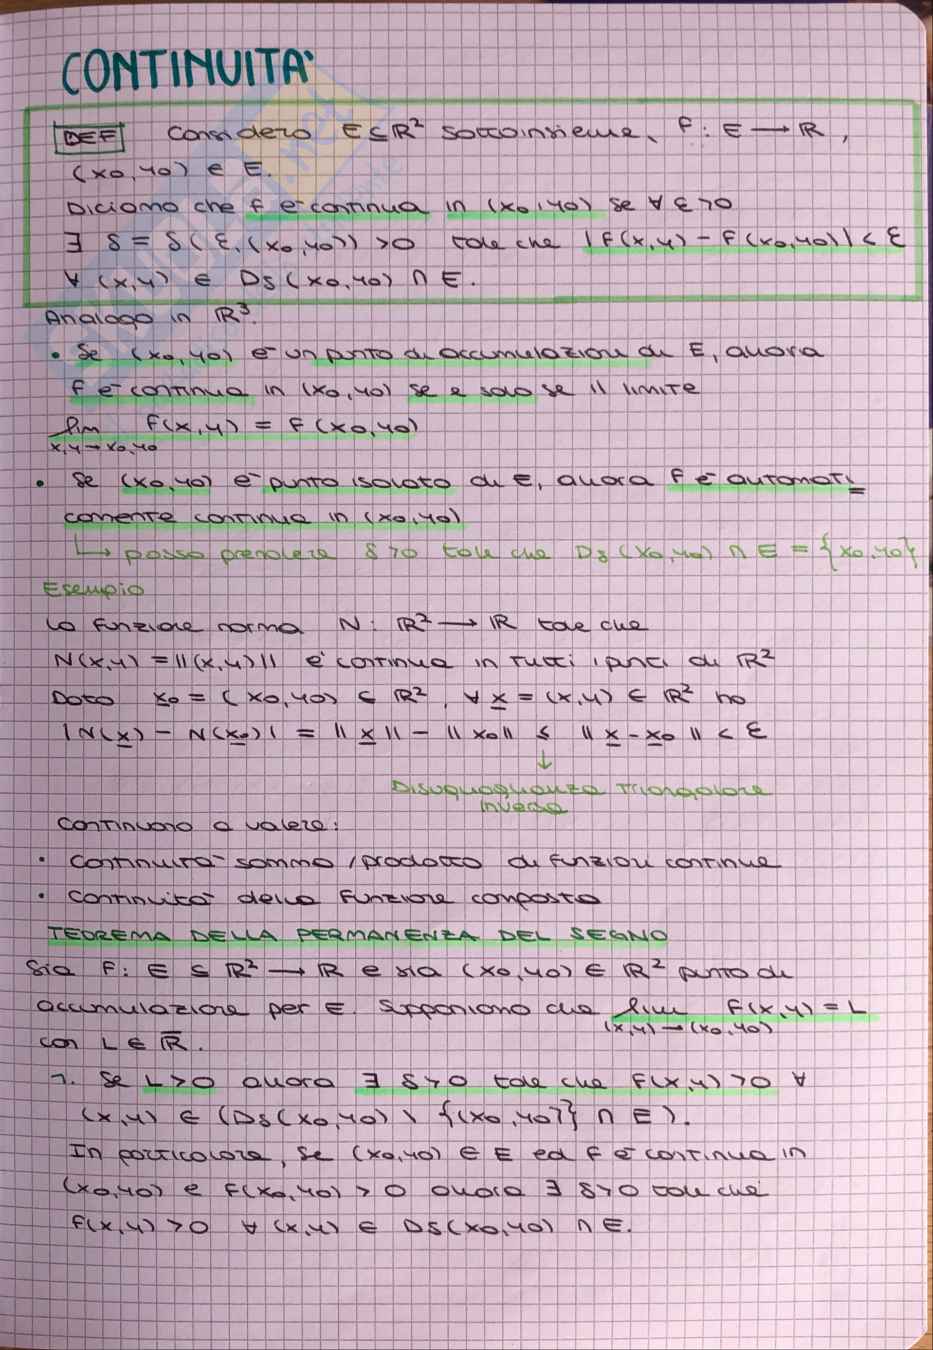 CONTINUITA'
DEF Considero E ⊆ ℝ² sottoinsieme, f: E → ℝ,
(x0,y0) ∈ E.
Diciamo che f è continua in (x0,y0) se ∀ ε>0
∃ δ = δ(ε,(x0,y0)) >0 tale che |f(x,y) - f(x0,y0)| < ε
∀ (x,y) ∈ Dδ(x0,y0) ∩ E.
Analogo in ℝ³.
• Se (x0,y0) è un punto di accumulazione di E, allora
f è continua in (x0,y0) se e solo se il limite
lim f(x,y) = f(x0,y0)
x,y→x0,y0
• Se (x0,y0) è punto isolato di E, allora f è automati
camente continua in (x0,y0)
↳ posso prendere δ>0 tale che Dδ(x0,y0) ∩ E = {x0,y0}
Esempio
La funzione norma N: ℝ² → ℝ tale che
N(x,y) = ||(x,y)|| è continua in tutti i punti di ℝ²
Dato x0 = (x0,y0) ∈ ℝ², ∀ x = (x,y) ∈ ℝ² ho
|N(x) - N(x0)| = ||x|| - ||x0|| ≤ ||x-x0|| < ε
↓
Disuguaglianza Triangolare
inversa
Continuano a valere:
• Continuità somma/prodotto di funzioni continue
• Continuità della funzione composta
TEOREMA DELLA PERMANENZA DEL SEGNO
Sia f: E ⊆ ℝ² → ℝ e sia (x0,y0) ∈ ℝ² punto di
accumulazione per E. Supponiamo che lim f(x,y) = L
(x,y)→(x0,y0)
con L ∈ ℝ̅.
1. Se L>0 allora ∃ δ>0 tale che f(x,y)>0 ∀
(x,y) ∈ (Dδ(x0,y0) \ {(x0,y0)} ∩ E).
In particolare, se (x0,y0) ∈ E ed f è continua in
(x0,y0) e f(x0,y0) > 0 allora ∃ δ>0 tale che
f(x,y) >0 ∀ (x,y) ∈ Dδ(x0,y0) ∩ E.